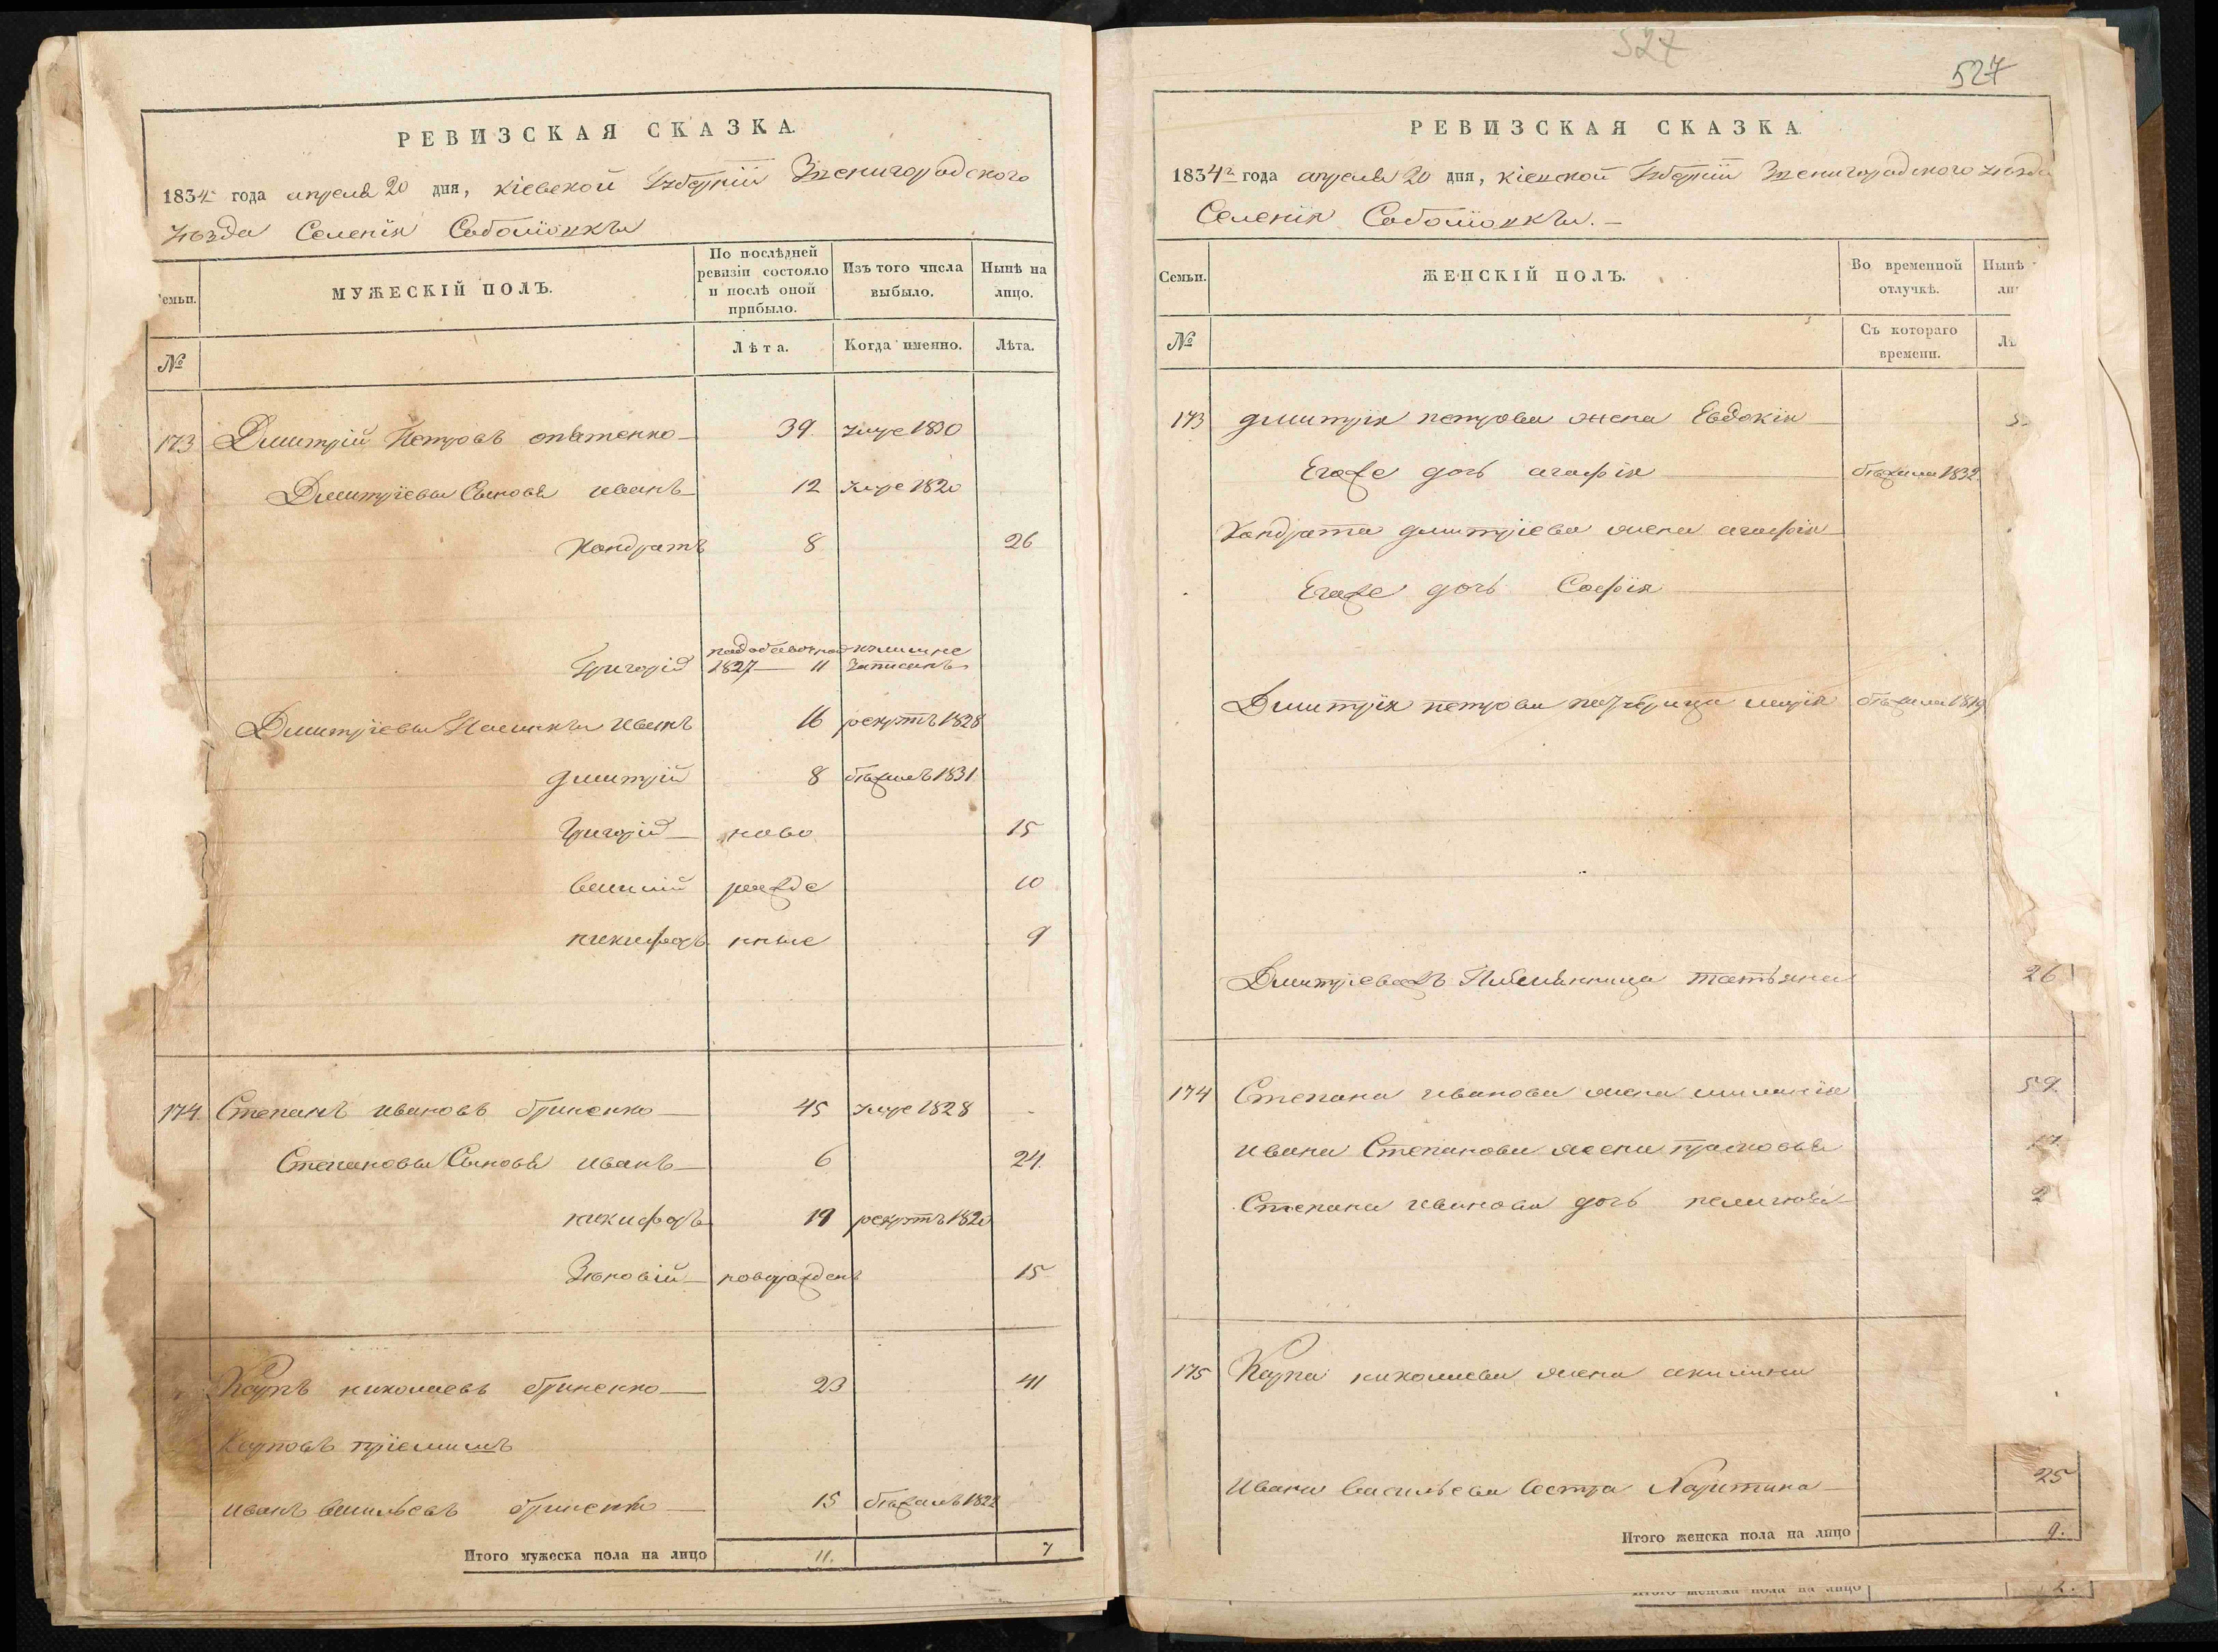 РЕВИЗСКАЯ СКАЗКА.
1834 года апреля 20 дня, Кіевской Губерніи Звенигородского
уезда Селенія Соболіовки
емьи.
МУЖЕСКІЙ ПОЛЪ.
По послѣдней ревизіи состояло и послѣ оной прибыло.
Изъ того числа выбыло.
Нынѣ на лицо.
№
Лѣта.
Когда именно.
Лѣта.
173 Дмитрій Петровъ 39 умре 1830
Дмитріевы Сыновья иванъ 12 умре 1820
Кондратъ 8 26
Григорій 1827 11 записанъ
Дмитріевы Пасынки иванъ 16 рекрутъ 1828
дмитрій 8 бѣжалъ 1831
Григорій ново 15
василій рожде 10
никифоръ нные 9
174 Степанъ ивановъ гриненко 45 умре 1828
Степановы Сыновья иванъ 6 24
никифоръ 19 рекрутъ 1820
Зѣновій новорожденъ 15
Карпъ николаевъ гриненко 23 41
Карповъ пріемышъ
иванъ васильевъ гриненко 15 бѣжалъ 1822
Итого мужеска пола на лицо 11. 7
527
527
РЕВИЗСКАЯ СКАЗКА.
1834 года апреля 20 дня, Кіевской Губерніи Звенигородского уезда
Селенія Соболіовки.
Семьи.
ЖЕНСКІЙ ПОЛЪ.
Во временной отлучкѣ.
Нынѣ
ли
№
Съ котораго времени.
Лѣ
173 дмитрія петрова жена Евдокія 5
Егоже дочь агафія бѣжала 1832
Кондрата дмитріева жена агафія
Егоже дочь Софія
Дмитрія петрова падчерица марія бѣжала 1819
Дмитріева Племянница татьяна 26
174 Степана иванова жена миланія 59
ивана Степанова жена прасковья
Степана иванова дочь пелагея 2
175 Карпа николаева жена акилина
ивана васильева сестра Харитина 25
Итого женска пола на лицо 9.
Итого женска пола на лицо 2.